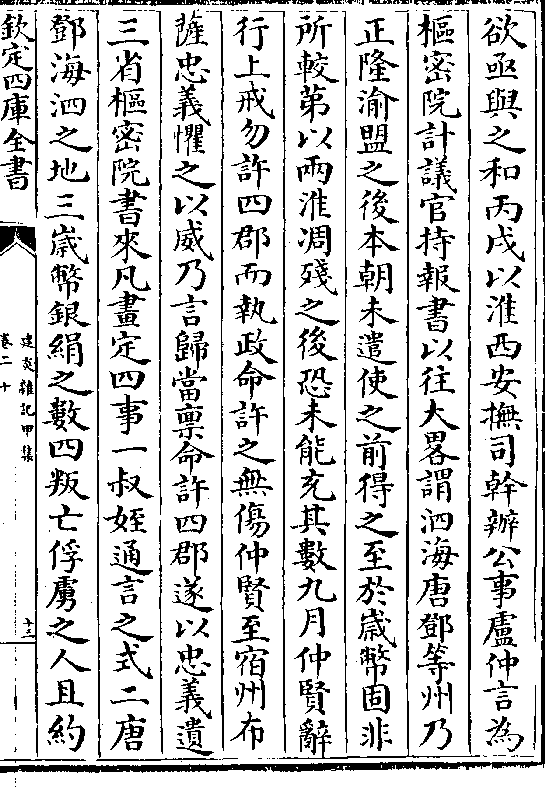 欲亟與之和丙戌以淮西安撫司幹辦公事盧仲言為
樞密院計議官持報書以往大畧謂泗海唐鄧等州乃
正隆渝盟之後本朝未遣使之前得之至於歳幣固非
所較第以兩淮凋殘之後恐未能充其數九月仲賢辭
行上戒勿許四郡而執政命許之無傷仲賢至宿州布
薩忠義懼之以威乃言歸當禀命許四郡遂以忠義遺
三省樞密院書來凡畫定四事一叔姪通言之式二唐
鄧海泗之地三歳幣銀絹之數四叛亡俘虜之人且約
欽定四庫全書
建炎雜記甲集
卷二十
十三